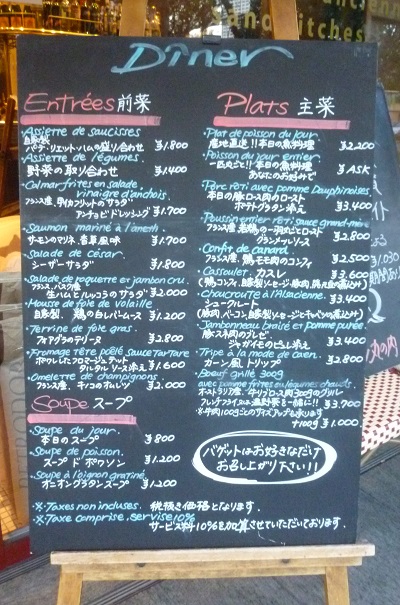 Dîner
Entrées 前菜
・Assiette de saucisses
自家製
パテ・リエット・ハムの盛り合わせ ¥1.800
・Assiette de légumes.
野菜の取り合わせ ¥1.400
・Calmar frites en salade
vinaigre d'anchois.
フランス産、ヤイカフリットのサラダ
アンチョビドレッシング ¥1.700
・Saumon mariné à l'aneth
サーモンのマリネ 香草風味 ¥1.700
・Salade de césar.
シーザーサラダ ¥1.800
・Salade de roquette et jambon cru.
フランス、バスク産
生ハムとルッコラのサラダ ¥2.000
・Mousse de foie de volaille
自家製、鶏の白レバームース ¥1.200
・Terrine de foie gras.
フォアグラのテリーヌ ¥2.800
・Fromage tête poêlé sauce Tartare
タルタルソース添え ¥1.600
・Omelette de champignons.
フランス産、キノコのオムレツ ¥2.000
Soupe スープ
・Soupe du jour
本日のスープ ¥800
・Soupe de poisson.
スープ ド ポワソン ¥1.200
・Soupe à l'oignon gratiné.
オニオングラタンスープ ¥1.200
Plats 主菜
・Plat de poisson du jour.
産地直送!!本日の魚料理 ¥2.200
・Poisson du jour entier
一匹丸ごと!!本日の魚料理
あなたのお好みで ¥ASK
・Porc rôti avec pomme Dauphinoises
本日の豚ロース肉のロースト
ポテトグラタン添え ¥3.400
・Poussin entier rôti sauce grand-mère
フランス産、若鶏の一羽丸ごとロースト
グランメールソース ¥2.800
・Confit de canard.
フランス産、鴨モモ肉のコンフィ ¥2.500
・Cassoulet. カスレ ¥3.600
・Choucroute à l'Alsacienne.
シュークルート ¥3.400
(豚肉、ベーコン、自家製ソーセージとキャベツの煮込み)
・Jambonneau braisé et pomme purée.
豚スネ肉のブレゼ
ジャガイモのピュレ添え ¥3.400
・Tripe à la mode de caen.
カーン風、トリップ ¥2.800
・Boeuf grillé 300g
avec pomme frites et légumes chauds.
オーストラリア産、牛リブロース肉300gのグリル
アレンテフライ&温野菜と一緒に!! ¥3.700
※牛肉100gごとのサイズアップも承ります
+100g ¥1.000
バゲットはお好きなだけ
お召し上がり下さい!!
※Taxes non incluses. 税抜き価格となります。
※Taxe comprise. servise 10%
サービス料10%を加算させていただいております。